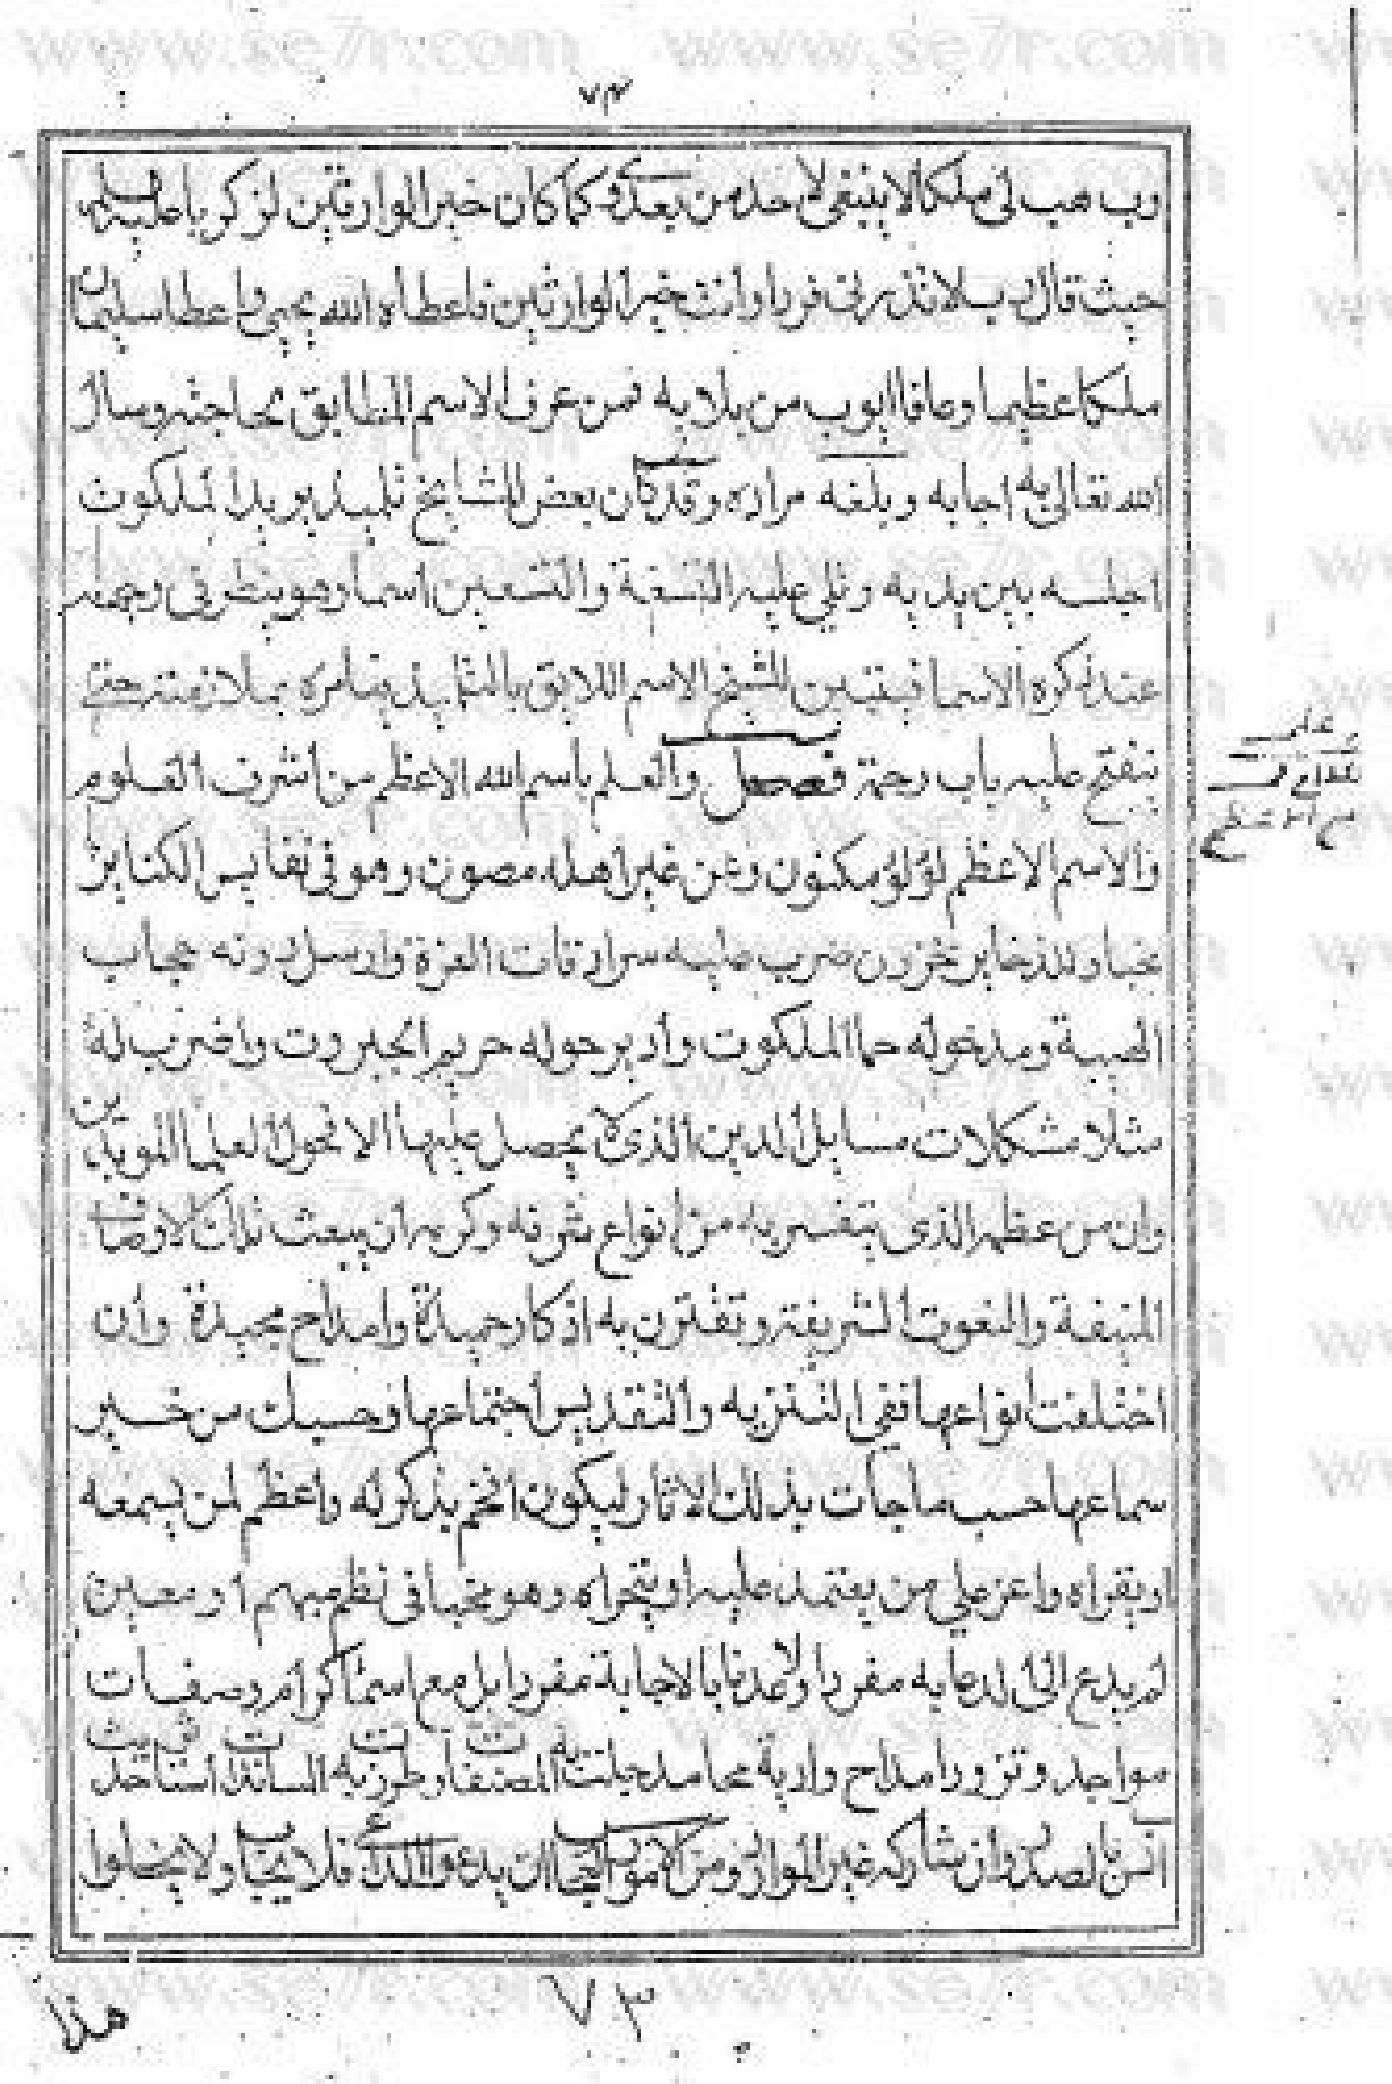 ٧٣
وب هب لى ملكا لا ينبغى لاحد من بعدى وكما كان خير الوارثين لزكريا عليه السلم
حيث قال رب لا تذرنى فردا وانت خير الوارثين فاعطاه الله يحيى واعطا سليمان
ملكا عظيما وعافا ايوب من بلايه فمن عرف الاسم المطابق بحاجته وسال
الله تعالى به اجابه وبلغه مراده وقد كان بعض المشايخ تلميذ يريد الملكوت
اجلسه بين يديه وتلي عليه التسعة والتسعين اسما وهو ينظر في وجهه
عند ذكره الاسما فيتبين للشيخ الاسم اللايق بالتلميذ يامره بملازمته حتى
ينفتح عليه باب رحمة فصل والعلم باسم الله الاعظم من اشرف العلوم
والاسم الاعظم لؤلؤ مكنون وعن غير اهله مصون وهو فى نفايس الكنايز
مخبا وللذخاير مخزون ضرب عليه سرادقات العزة وارسل دونه حجاب
الهيبة ومد حوله حما الملكوت وادير حوله حريم الجبروت واضرب له
مثلا مشكلات مسايل الدين الذى لا يحصل عليها الا فحول العلما المويدين
وان من عظمه الذى يتفسر به من انواع شرفه وكرمه ان يبعث تلك الاوصاف
المنيفة والنعوت الشريفة وتقترن به اذكار حميدة وامداح مجيدة وان
اختلفت انواعها ففى التنزيه والتقديس اجتماعها وحسبك من خبر
سماعها حسب ما جآت بذلك الاثار ليكون افخم بذكر له واعظم لمن يسمعه
او يقراه واعز على من يعتمد عليه او يتحراه وهو مخبا فى نظم مبهم او معين
لم يدع الى الدعا به مفردا ولا وعدنا بالاجابة مفردا بل مع اسما كرام وصفات
مواجد وتزور امداح وادية محامد جلت به المصنفات وطرزت به المساندات
آنس بالصدر وان شاركه غير الموارد ومن الابواب ان يدعو الداعى فلا يجاب ولا يخلوا
علم
هذا
٧٣